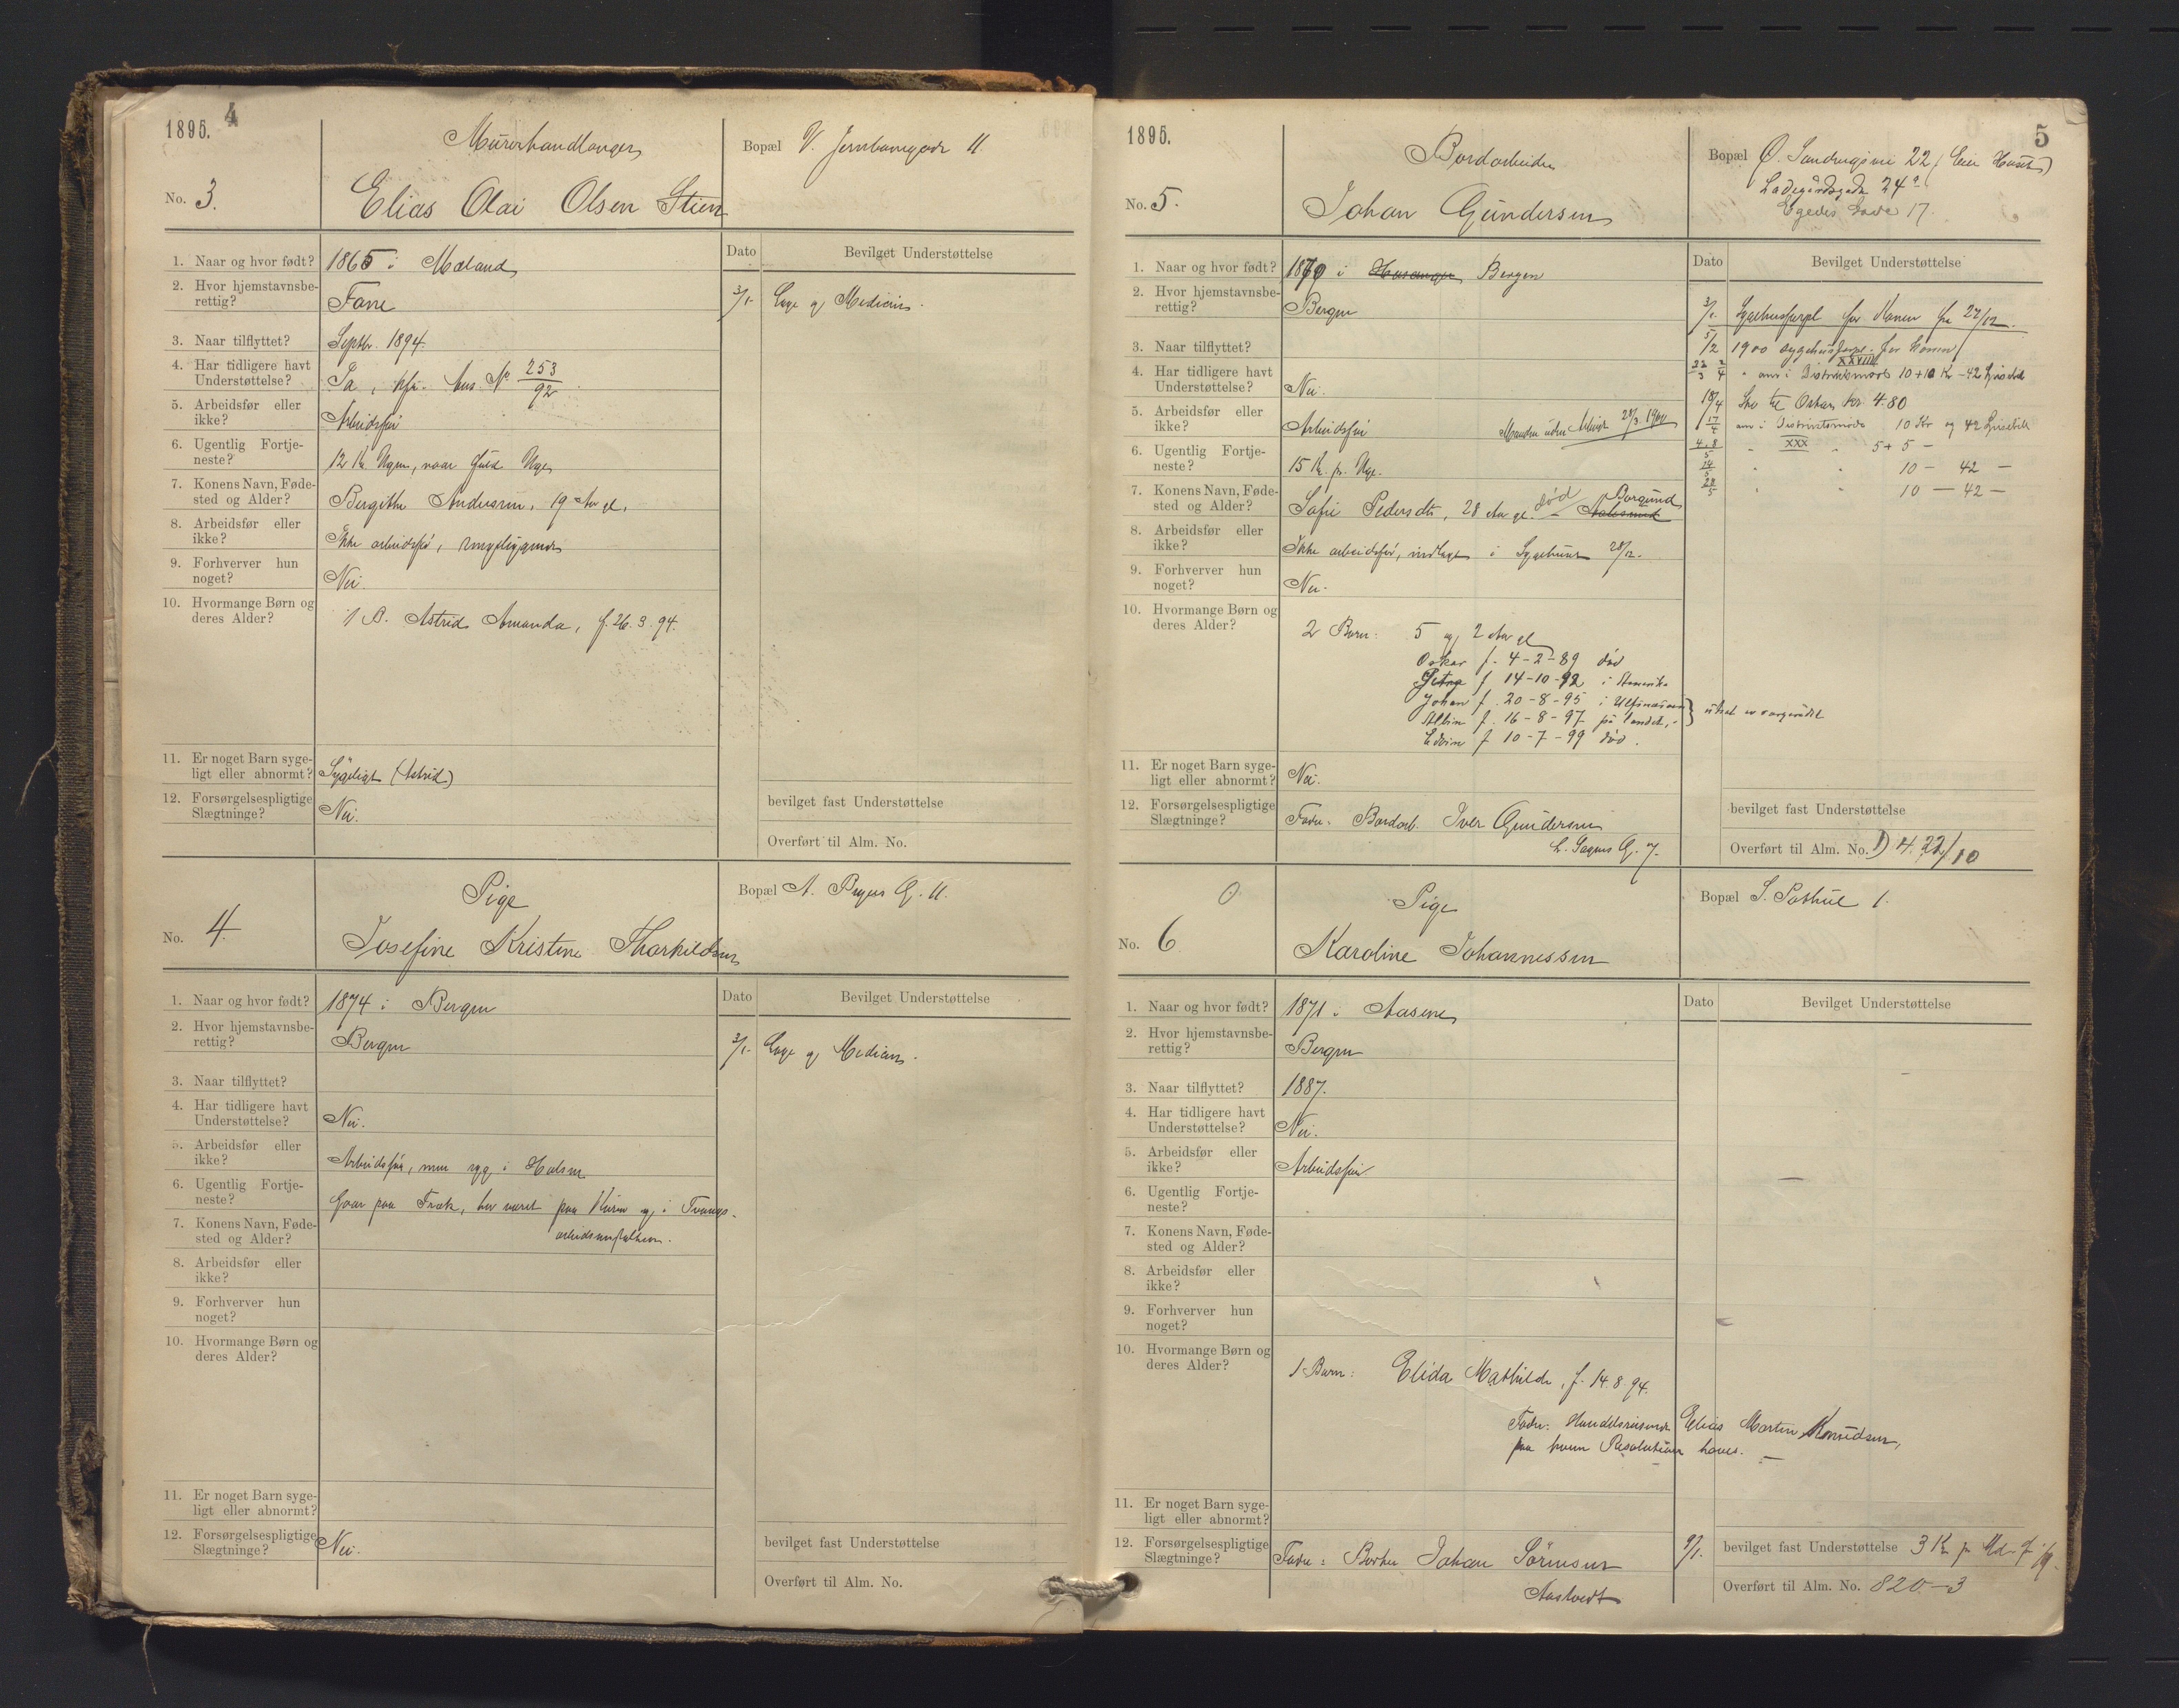 1895. 4
Murerhandlanger
Bopæl V. Jernbanegade 11.
No. 3.
Elias Olai Olsen Stien
1. Naar og hvor født? 1865 i Mæland
2. Hvor hjemstavnsbe-
rettig? Fane
3. Naar tilflyttet? Septbr. 1894.
4. Har tidligere havt
Understøttelse? Ja, No 253/92
5. Arbeidsfør eller
ikke? Arbeidsfør
6. Ugentlig Fortje-
neste? 12 Kr. Ugen, naar fuld Uge
7. Konens Navn, Føde-
sted og Alder? Bergithe Andersen, 19 Aar gl.
8. Arbeidsfør eller
ikke? Ikke arbeidsfør, sengeliggende
9. Forhverver hun
noget? Nei.
10. Hvormange Børn og
deres Alder? 1 B. Astrid Amanda, f. 26.3.94.
11. Er noget Barn syge-
ligt eller abnormt? Sygeligt (Astrid)
12. Forsørgelsespligtige
Slægtninge? Nei.
Dato Bevilget Understøttelse
3/1. Læge og Medicin.
bevilget fast Understøttelse
Overført til Alm. No.
Pige
Bopæl A. Pryes G. 11.
No. 4.
Josefine Kristine Thorkildsen
1. Naar og hvor født? 1874 i Bergen
2. Hvor hjemstavnsbe-
rettig? Bergen
3. Naar tilflyttet?
4. Har tidligere havt
Understøttelse? Nei.
5. Arbeidsfør eller
ikke? Arbeidsfør, men syg i Halsen
6. Ugentlig Fortje-
neste? Gaar paa Træk, har været paa Kuren og i Tvangs-
arbeidsanstalten.
7. Konens Navn, Føde-
sted og Alder?
8. Arbeidsfør eller
ikke?
9. Forhverver hun
noget?
10. Hvormange Børn og
deres Alder?
11. Er noget Barn syge-
ligt eller abnormt?
12. Forsørgelsespligtige
Slægtninge? Nei.
Dato Bevilget Understøttelse
3/1. Læge og Medicin.
bevilget fast Understøttelse
Overført til Alm. No.
1895. 5
Bordarbeider
Bopæl Ø. Sandvigsvei 22 (Eier Huset)
Ladegårdsgade 24a
Egedes Gade 17.
No. 5.
Johan Gundersen
1. Naar og hvor født? 1870 i Hosanger Bergen
2. Hvor hjemstavnsbe-
rettig? Bergen
3. Naar tilflyttet?
4. Har tidligere havt
Understøttelse? Nei.
5. Arbeidsfør eller
ikke? Arbeidsfør Manden uden Arbeide 28/3 1900
6. Ugentlig Fortje-
neste? 15 Kr. pr. Uge.
7. Konens Navn, Føde-
sted og Alder? Sofie Pedersdtr, 28 Aar gl. død – Aalesund Borgund
8. Arbeidsfør eller
ikke? Ikke arbeidsfør, indlagt i Sygehuset 28/12.
9. Forhverver hun
noget? Nei.
10. Hvormange Børn og
deres Alder? 2 Børn: 5 og 2 Aar gl
Oskar f. 4-2-89 død
f 14-10-92 i Amerika
Johan f. 20-8-95 i Ulfsnæsøen
Albin f. 16-8-97 på landet, } utsat av vergerådet
Edvin f 10-7-99 død.
11. Er noget Barn syge-
ligt eller abnormt? Nei.
12. Forsørgelsespligtige
Slægtninge? Fader: Bordarb. Iver Gundersen
L. Sagens G. 7.
Dato Bevilget Understøttelse
3/1. Sygehusforpl for Konen fra 22/12.
5/2 1900 sygehusforpl. for konen
22/3 2/4 " am i Distriktsmøde XXVIII 10 + 10 Kr – 42
18/4 Sko til Oskar kr. 4.80
17/4 am i Distriktsmøde 10 Kr og 42
4.8/5 " XXX " 5 + 5 –
14/5 " " 10 – 42 –
22/5 " " 10 – 42 –
bevilget fast Understøttelse
Overført til Alm. No. D 4.22/10
0
Pige
Bopæl S. Pothul 1.
No. 6
Karoline Johannessen
1. Naar og hvor født? 1871 i Aasene
2. Hvor hjemstavnsbe-
rettig? Bergen
3. Naar tilflyttet? 1887.
4. Har tidligere havt
Understøttelse? Nei.
5. Arbeidsfør eller
ikke? Arbeidsfør
6. Ugentlig Fortje-
neste?
7. Konens Navn, Føde-
sted og Alder?
8. Arbeidsfør eller
ikke?
9. Forhverver hun
noget?
10. Hvormange Børn og
deres Alder? 1 Barn: Elida Mathilde, f. 14.8.94.
Fader: Handelsreisende Elias Martin Knudsen,
paa hvem Resolution haves. –
11. Er noget Barn syge-
ligt eller abnormt?
12. Forsørgelsespligtige
Slægtninge? Fader: Johan Sørensen
Aastvedt
Dato Bevilget Understøttelse
9/1. bevilget fast Understøttelse 3 Kr pr Md. f.
Overført til Alm. No. 820-3